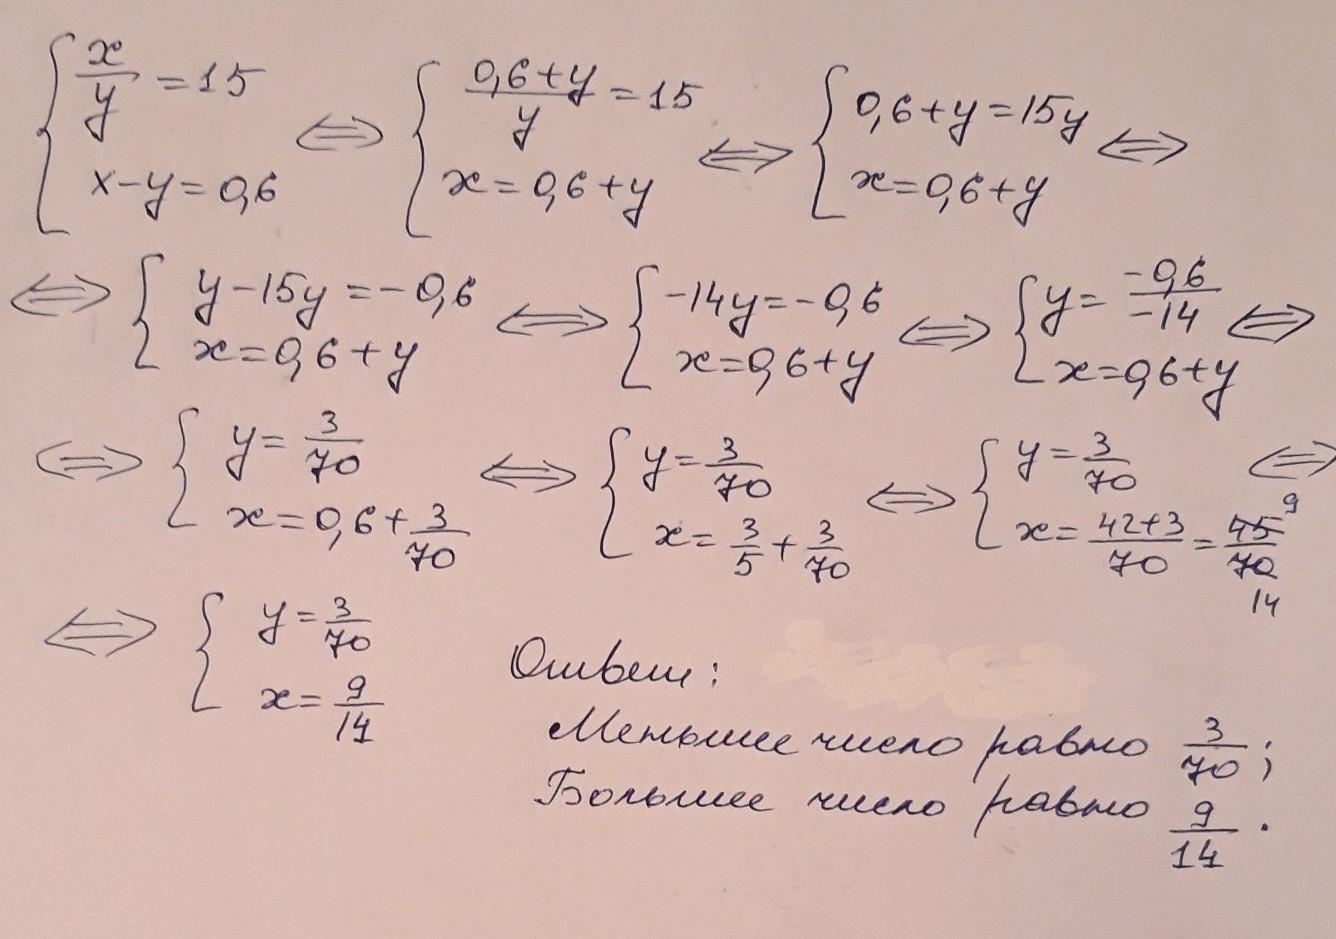 { x/y = 15; x-y = 0,6 ⇔ { (0,6+y)/y = 15; x = 0,6+y ⇔ { 0,6+y = 15y; x = 0,6+y ⇔
⇔ { y-15y = -0,6; x = 0,6+y ⇔ { -14y = -0,6; x = 0,6+y ⇔ { y = -0,6/-14; x = 0,6+y ⇔
⇔ { y = 3/70; x = 0,6 + 3/70 ⇔ { y = 3/70; x = 3/5 + 3/70 ⇔ { y = 3/70; x = (42+3)/70 = 45/70 9 14 ⇔
⇔ { y = 3/70; x = 9/14
Ответ:
Меньшее число равно 3/70;
Большее число равно 9/14.